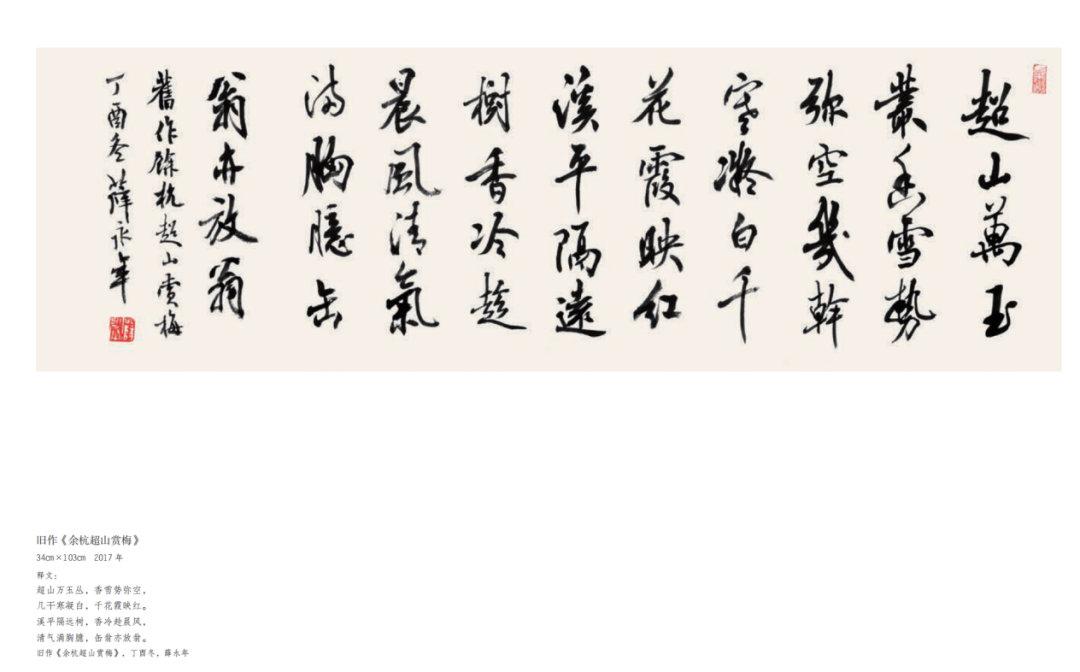 超山萬玉
叢香雪勢
弥空幾幹
寒凝白千
花霞映红
溪平隔遠
樹香冷趁
晨風清氣
满胸臆缶
翁亦放翁
舊作餘杭超山賞梅
丁酉冬薛永年
旧作《余杭超山赏梅》
34cm×103cm 2017 年
释文：
超山万玉丛，香雪势弥空，
几干寒凝白，千花霞映红。
溪平隔远树，香冷趁晨风，
清气满胸臆，缶翁亦放翁。
旧作《余杭超山赏梅》，丁酉冬，薛永年